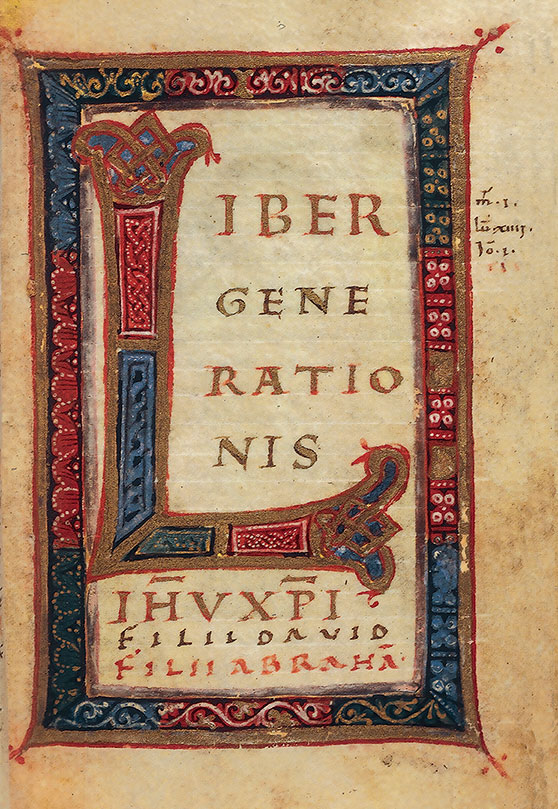 LIBER
GENE
RATIO
NIS
IH̅V XP̅I
FILII DAVID
FILII ABRAHĀ
m̅·.I.
lū·xiiii.
Iō·.I.